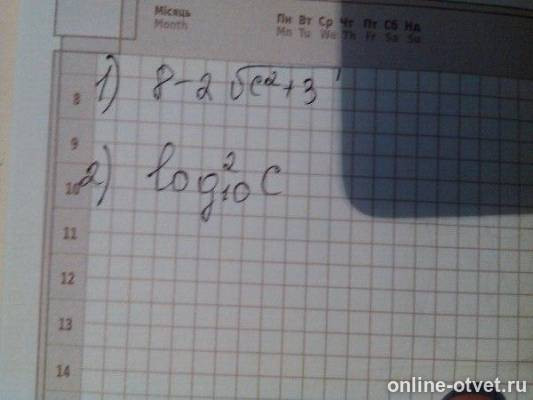 Місяць Пн Вт Ср Чт Пт Сб Нд
Month Mn Tu We Th Fr Sa Su
1) 8 - 2 √c² + 3
8
9
2) log²₁₀ C
10
11
12
13
14
online-otvet.ru